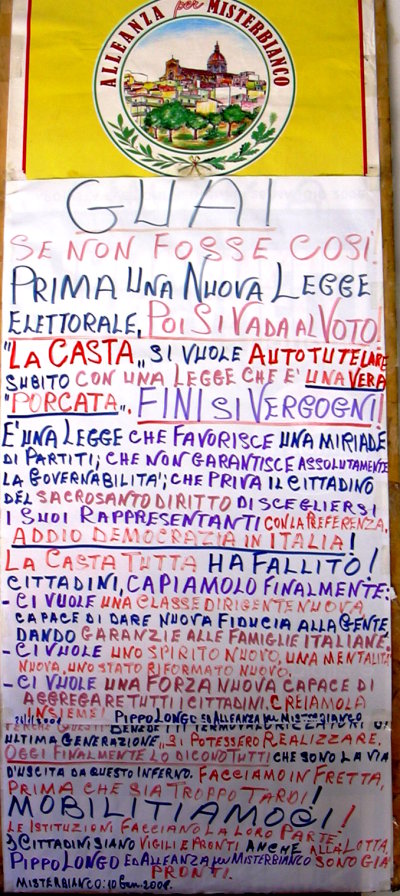 ALLEANZA per MISTERBIANCO
GUAI
SE NON FOSSE COSI'
PRIMA UNA NUOVA LEGGE
ELETTORALE, POI SI VADA AL VOTO!
"LA CASTA" SI VUOLE AUTOTUTELARE
SUBITO CON UNA LEGGE CHE E' UNA VERA
"PORCATA". FINI SI VERGOGNI!
E' UNA LEGGE CHE FAVORISCE UNA MIRIADE
DI PARTITI; CHE NON GARANTISCE ASSOLUTAMENTE
LA GOVERNABILITA'; CHE PRIVA IL CITTADINO
DEL SACROSANTO DIRITTO DI SCEGLIERSI
I SUOI RAPPRESENTANTI CON LA PREFERENZA.
ADDIO DEMOCRAZIA IN ITALIA!
LA CASTA TUTTA HA FALLITO!
CITTADINI, CAPIAMOLO FINALMENTE:
- CI VUOLE UNA CLASSE DIRIGENTE NUOVA
CAPACE DI DARE NUOVA FIDUCIA ALLA GENTE,
DANDO GARANZIE ALLE FAMIGLIE ITALIANE.
- CI VUOLE UNO SPIRITO NUOVO, UNA MENTALITA'
NUOVA, UNO STATO RIFORMATO NUOVO.
- CI VUOLE UNA FORZA NUOVA CAPACE DI
AGGREGARE TUTTI I CITTADINI. CREIAMOLA
INSIEME! PIPPO LONGO ED ALLEANZA per MISTERBIANCO
PERCHE' QUESTI BENEDETTI TERMOVALORIZZATORI DI
ULTIMA GENERAZIONE" SI POTESSERO REALIZZARE.
OGGI FINALMENTE LO DICONO TUTTI CHE SONO LA VIA
D'USCITA DA QUESTO INFERNO. FACCIAMO IN FRETTA,
PRIMA CHE SIA TROPPO TARDI!
MOBILITIAMOCI!
LE ISTITUZIONI FACCIANO LA LORO PARTE.
I CITTADINI SIANO VIGILI E PRONTI ANCHE ALLA LOTTA.
PIPPO LONGO ED ALLEANZA per MISTERBIANCO SONO GIA'
PRONTI.
MISTERBIANCO: 10 Gen. 2008.